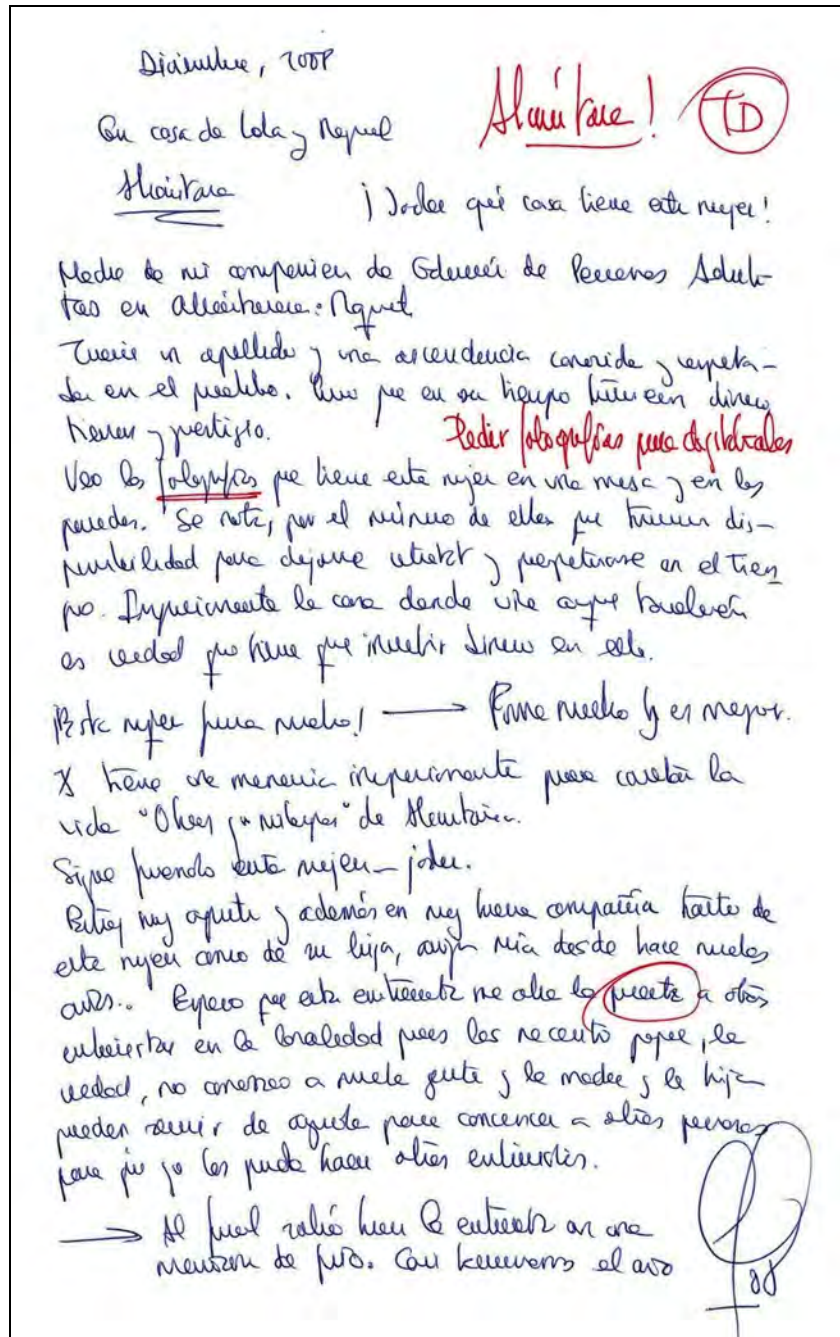 Diciembre, 2008
Alcántara! TD
En casa de Lola y Raquel
Alcántara
¡Joder qué casa tiene esta mujer!
Madre de mi compañera de Educación de Personas Adul-
tas en Alcántara: Raquel
Tiene un apellido y una ascendencia conocida y respeta-
da en el pueblo. que en su tiempo tuvieron dinero,
tierras y prestigio.
Pedir fotografías para digitalizarlas
Veo las fotografías que tiene esta mujer en una mesa y en las
paredes. Se nota, por el número de ellas que tuvieron dis-
ponibilidad para dejarse retratar y perpetuarse en el tiem
po. Impresionante la casa donde vive aunque también
es verdad que tiene que invertir dinero en ella.
¡Esta mujer fuma mucho! → Fuma mucho y es mayor.
X tiene una memoria impresionante para contar la
vida "Obras y milagros" de Alcántara.
Sigue fumando esta mujer - joder.
Estoy muy a gusto y además en muy buena compañía tanto de
esta mujer como de su hija, amiga mía desde hace muchos
años.. Espero que esta entrevista me abra la puerta a otras
entrevistas en la localidad pues las necesito porque, la
verdad, no conozco a mucha gente y la madre y la hija
pueden servir de ayuda para convencer a otras personas
para que yo les pueda hacer otras entrevistas.
→ Al final salió bien la entrevista en una
de frío. Casi terminamos el año
08